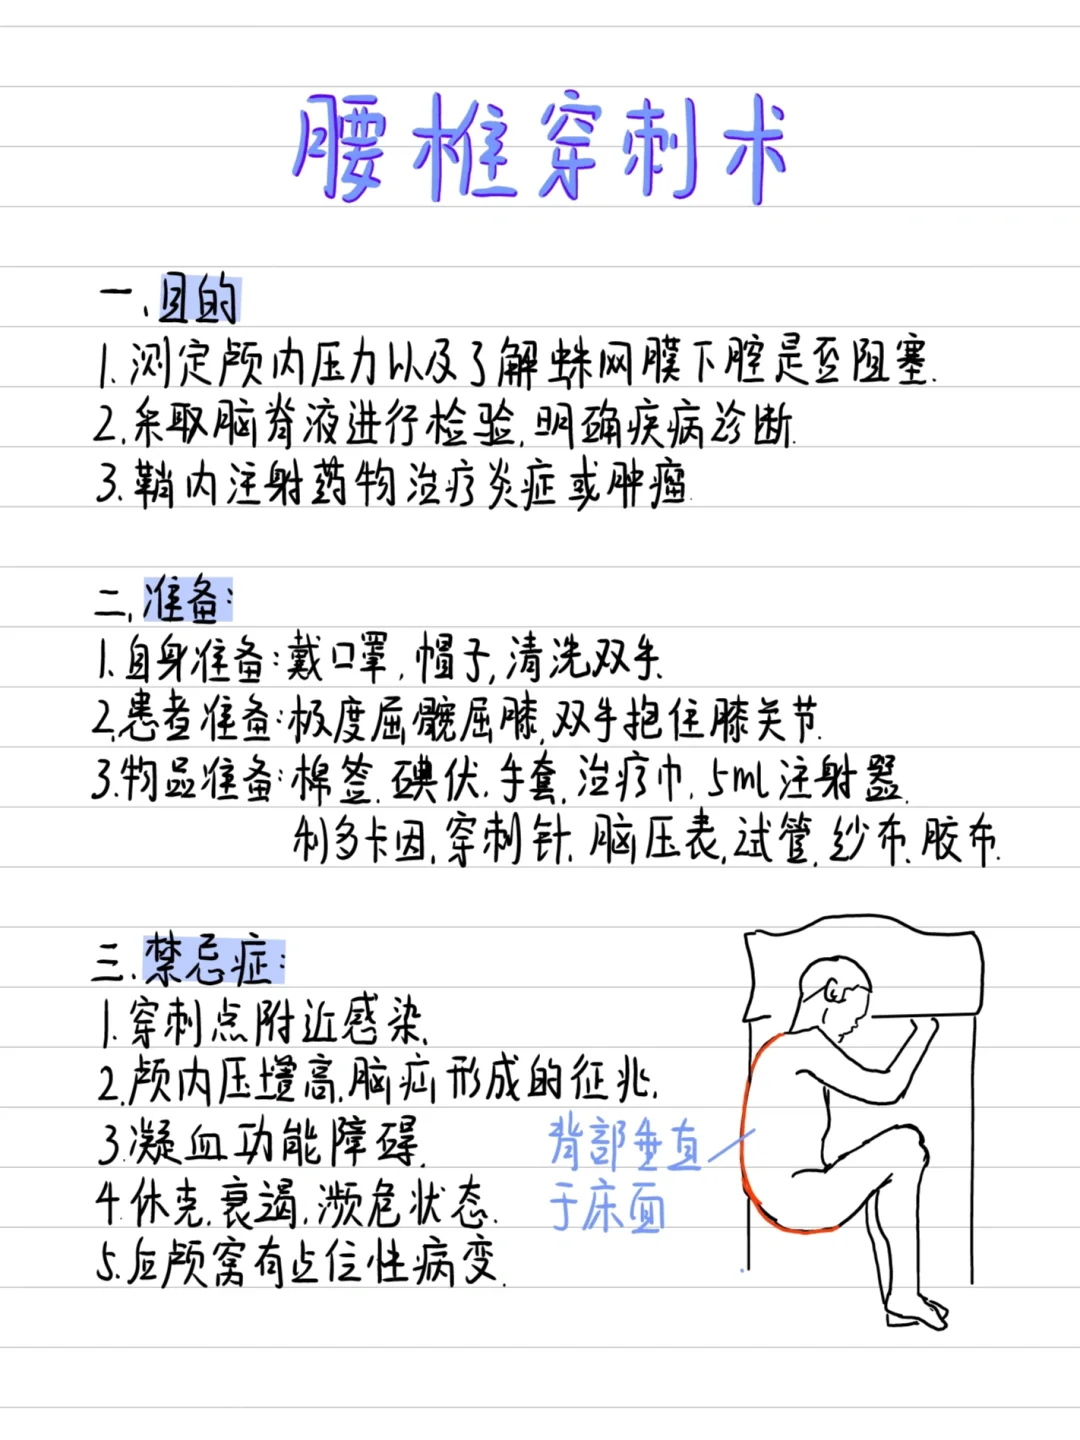 腰椎穿刺术
一、目的
1.测定颅内压力以及了解蛛网膜下腔是否阻塞.
2.采取脑脊液进行检验,明确疾病诊断.
3.鞘内注射药物治疗炎症或肿瘤.
二、准备:
1.自身准备:戴口罩,帽子,清洗双手.
2.患者准备:极度屈髋屈膝,双手抱住膝关节.
3.物品准备:棉签.碘伏.手套.治疗巾.5ml注射器.
利多卡因.穿刺针.脑压表,试管.纱布.胶布.
三.禁忌症:
1.穿刺点附近感染.
2.颅内压增高.脑疝形成的征兆.
3.凝血功能障碍.
4.休克.衰竭.濒危状态.
5.后颅窝有占位性病变.
背部垂直
于床面